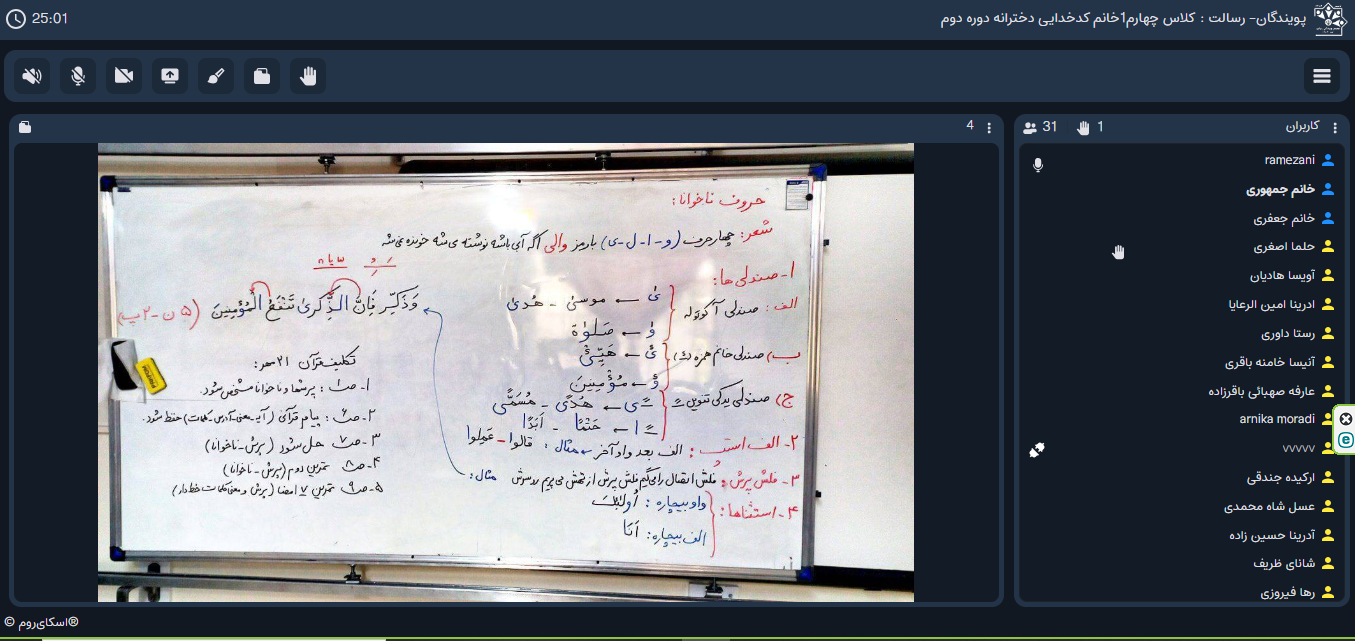 25:01
پویندگان- رسالت : کلاس چهارم1خانم کدخدایی دخترانه دوره دوم
4
31
1
کاربران
ramezani
خانم جمهوری
خانم جعفری
حلما اصغری
آویسا هادیان
ادرینا امین الرعایا
رستا داوری
آنیسا خامنه باقری
عارفه صهبائی باقرزاده
arnika moradi
vvvvvv
ارکیده جندقی
عسل شاه محمدی
آدرینا حسین زاده
شانای ظریف
رها فیروزی
حروف ناخوانا:
شعر: چهار حرف (و - ا - ل - ی) بارمز والی اگه آبی باشه نوشته می شه خونده نمی شه
۱- صندلی ها:
الف: صندلی آ کوتوله
یٰ ← موسیٰ - هُدیٰ
وٰ ← صَلوٰة
ب) صندلی خانم همزه (ء)
ئ ← هَيِّئْ
ؤ ← مُؤْمِنینَ
ج) صندلی یدکی تنوین ـً
ـًی ← هُدًی - مُسَمًّی
ـًا ← حَتْمًا - أَبَدًا
۲- الف است: الف بعد واو آخر ← مثال: قالوا - عَمِلوا
۳- فلش پرش: فلش اتصال رامی گیم فلش پرش از تهش می پریم رو سرش مثال:
۴- استثناها:
واو بیچاره: أُولٰئِكَ
الف بیچاره: أَنَا
وَذَكِّر فَإِنَّ الذِّكریٰ تَنْفَعُ الْمُؤْمِنینَ
تکلیف قرآن ۲۱ مهر:
۱- ص۱: پرشها و ناخوانا مشخص شود.
۲- ص۶: پیام قرآنی (آیه - معنی - آدرس - کلمات) حفظ شود.
۳- ص۷ حل شود (پرش - ناخوانا)
۴- ص۸ تمرین دوم (پرش - ناخوانا)
۵- ص۹ تمرین ۷ امضا (پرش و معنی کلمات خط دار)
© اسکای‌روم®